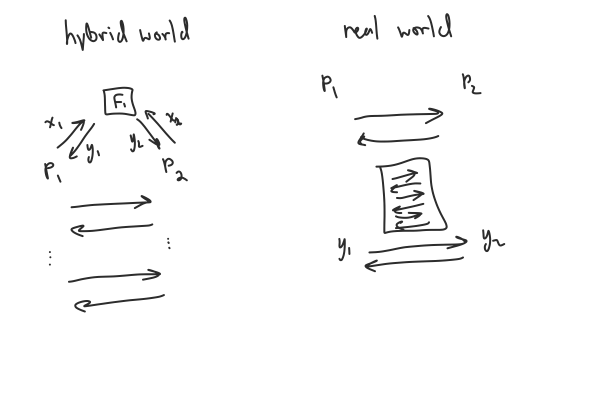 hybrid world
F₁
x₁
x₂
y₁
y₂
P₁
P₂
⋮
⋮
real world
P₁
P₂
y₁
y₂